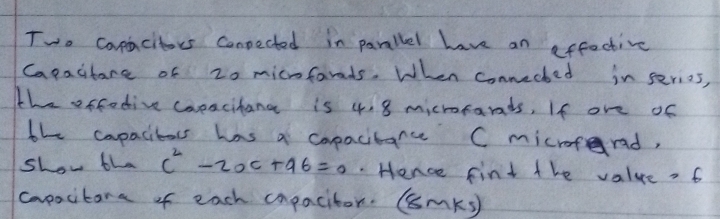 Two capacitors connected in parallel have an effective
Capacitance of 20 microfarads. When connected in series,
the effective capacitance is 4.8 microfarads. If one of
the capacitors has a capacitance C microfarad,
Show tha C² - 20C + 96 = 0. Hence find the value of
Capacitance of each capacitor. (8mks)